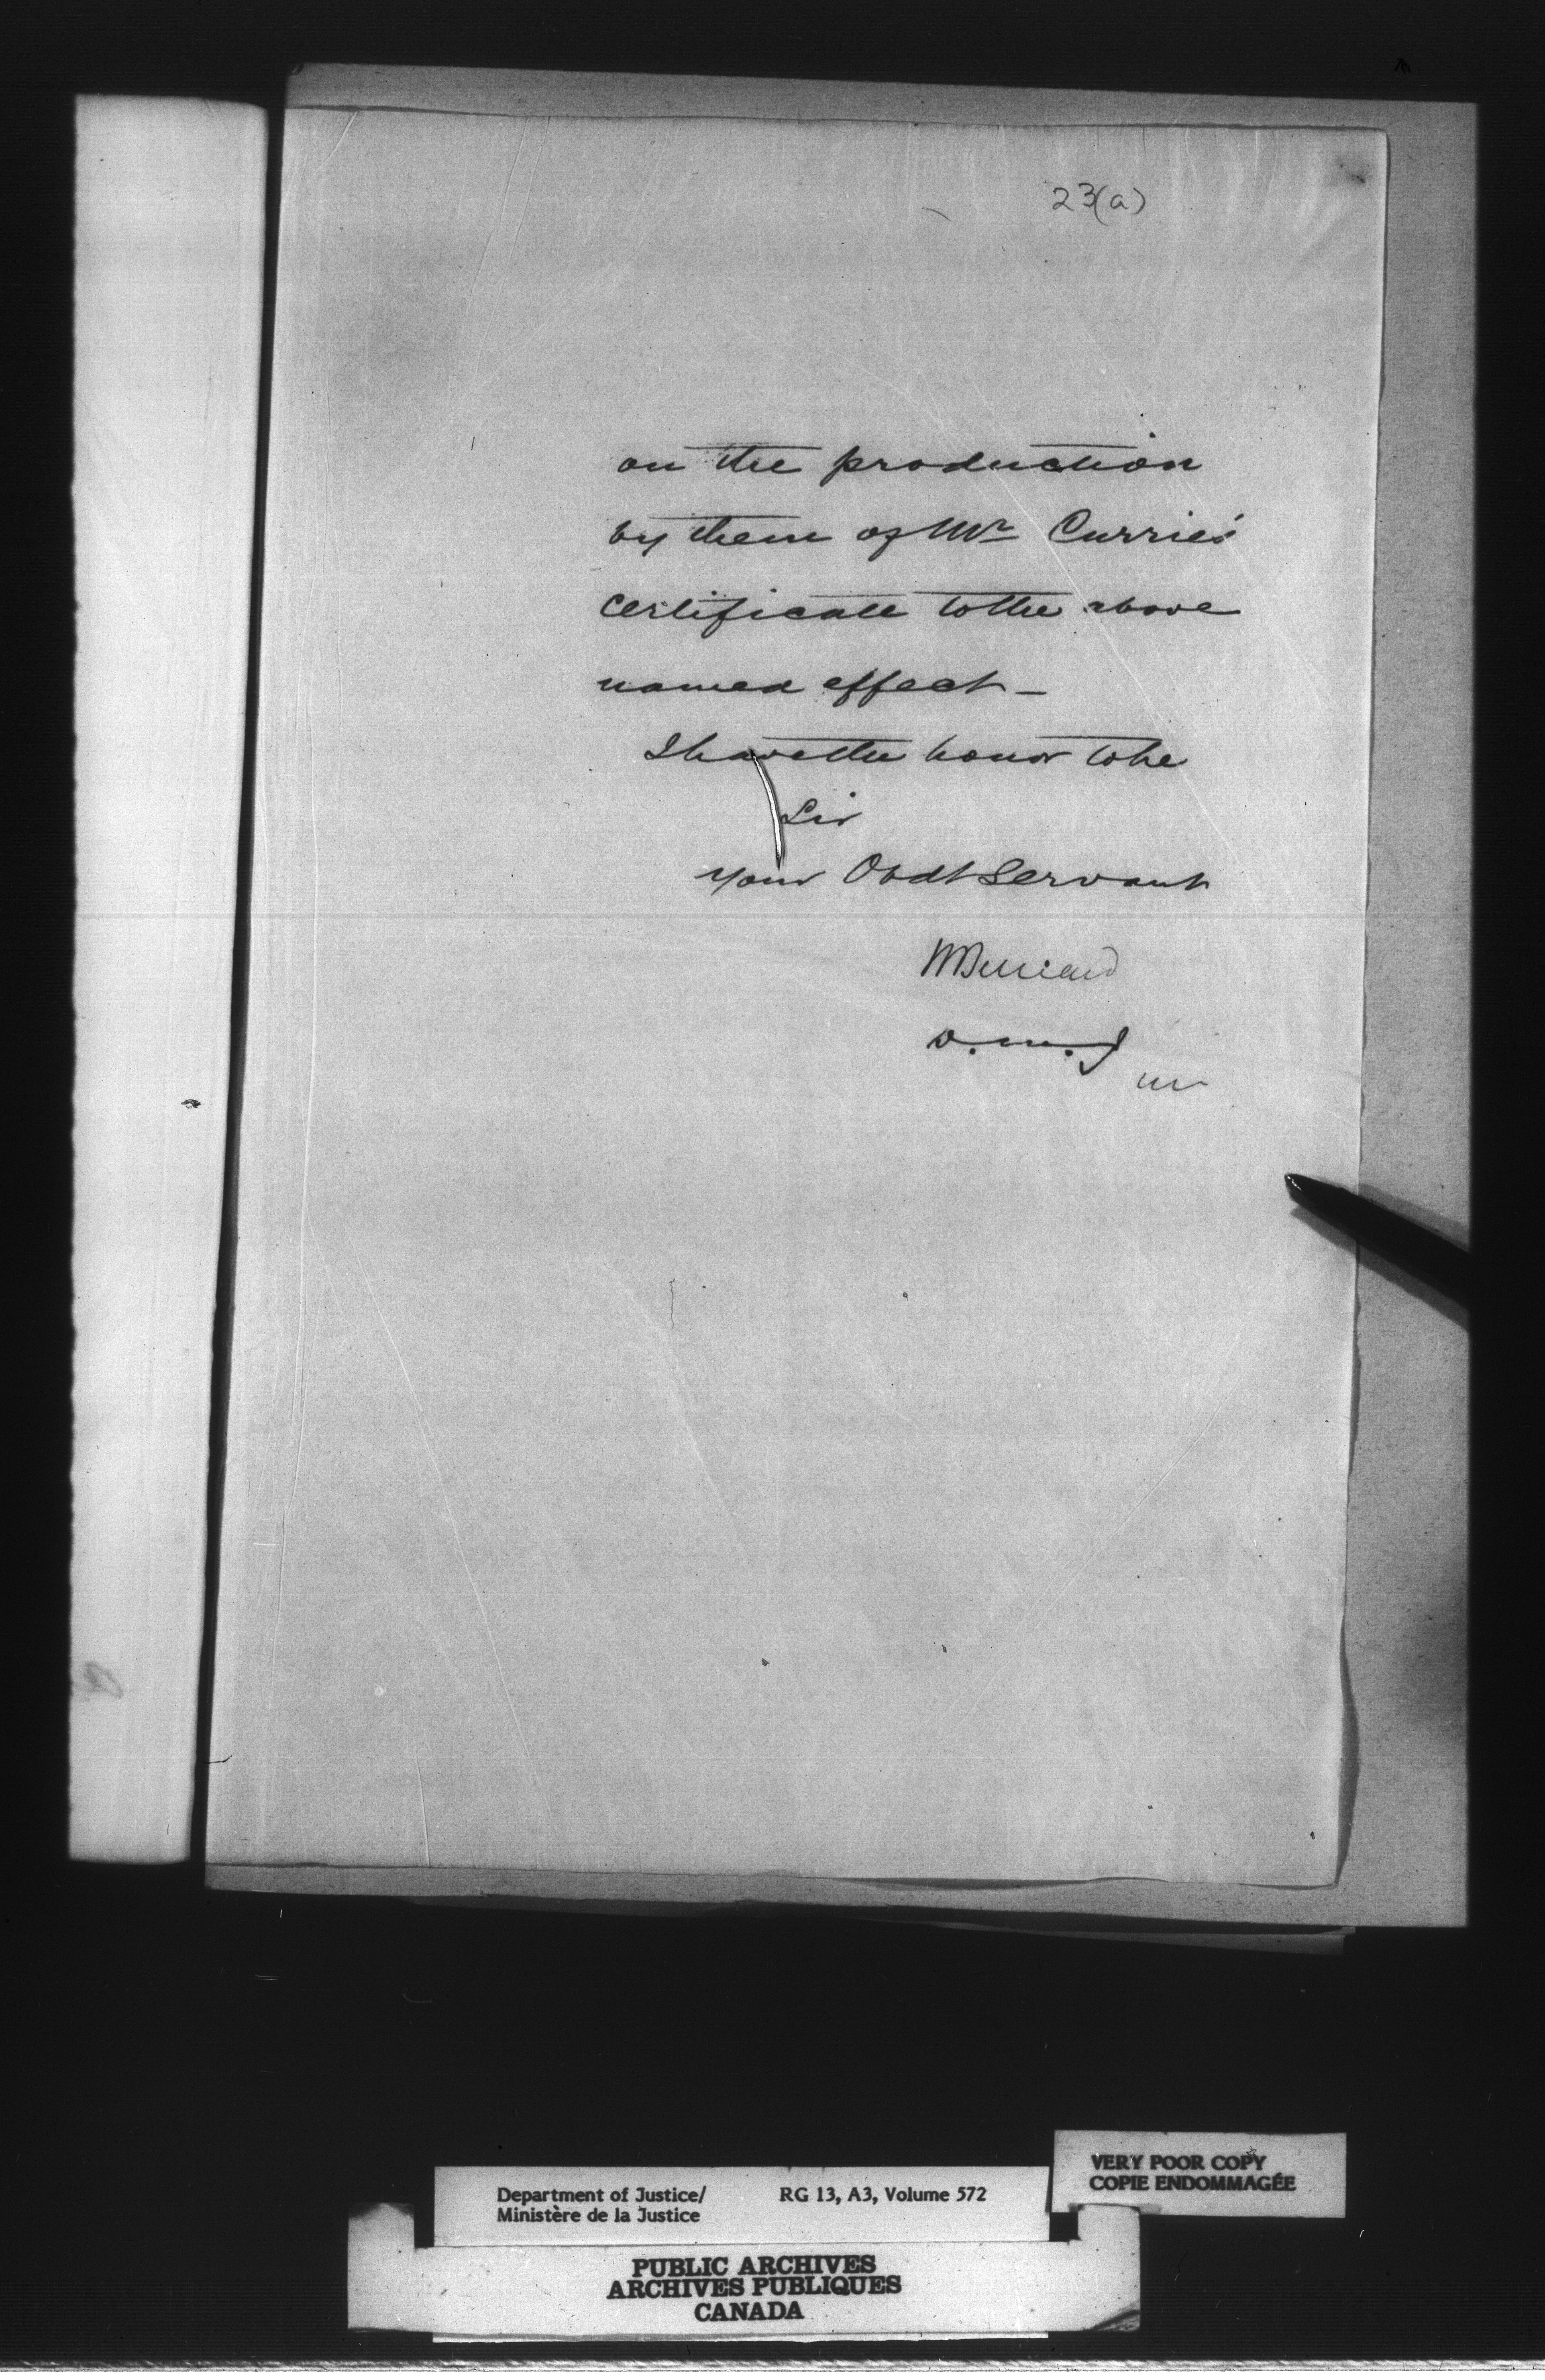 23(a)
on the production
by them of Mr Currie's
certificate to the above
named effect —
I have the honor to be
Sir
Your Obdt Servant
D.M.J
Department of Justice/ RG 13, A3, Volume 572
Ministère de la Justice
VERY POOR COPY
COPIE ENDOMMAGÉE
PUBLIC ARCHIVES
ARCHIVES PUBLIQUES
CANADA